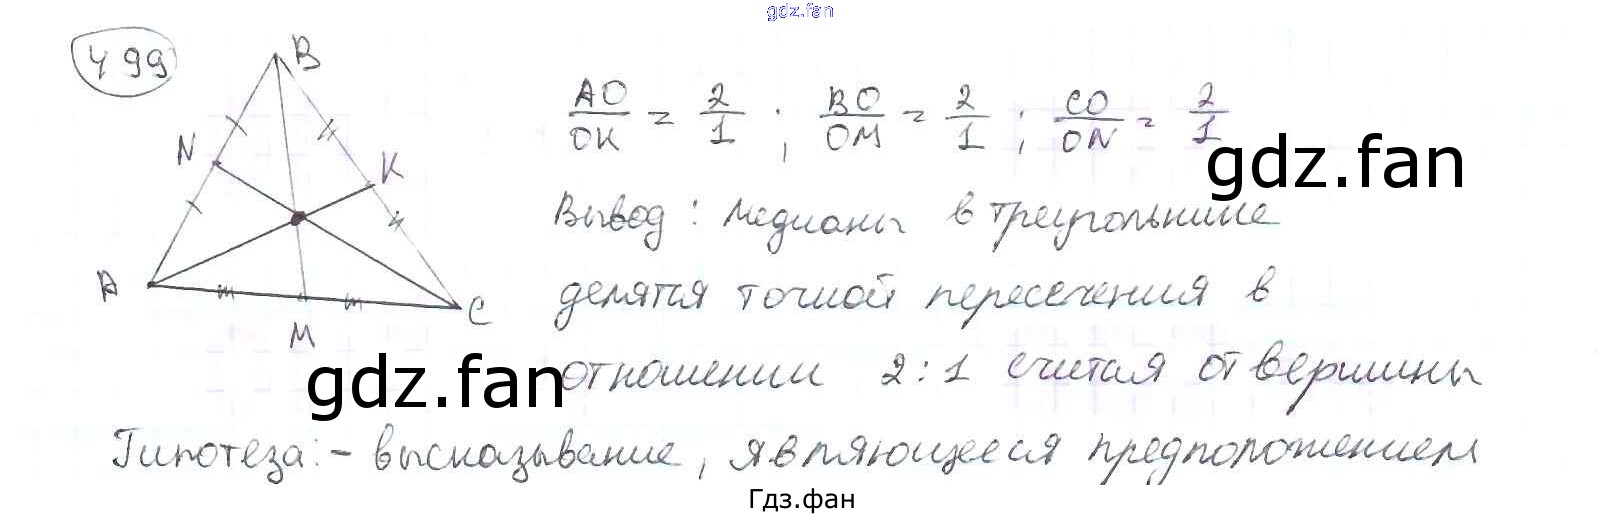 gdz.fan
499
B
N
K
A
M
C
AO/OK = 2/1 ; BO/OM = 2/1 ; CO/ON = 2/1
gdz.fan
Вывод: Медианы в треугольнике
делятся точкой пересечения в
gdz.fan
отношении 2:1 считая от вершины
Гипотеза: - высказывание, являющееся предположением
Гдз.фан